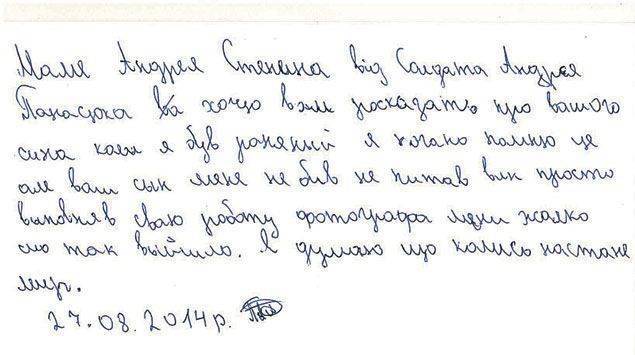 Маме Андрея Стенина від Солдата Андрєя
Панасюка я хочю вам росказать про вашого
сина коли я був раненый я погано помню це
але ваш сын мене не бив не питав вин просто
выповняв свою роботу фотографа мени жалко
що так выйшло. Я думаю що колись настане
мир.
27.08.2014р.